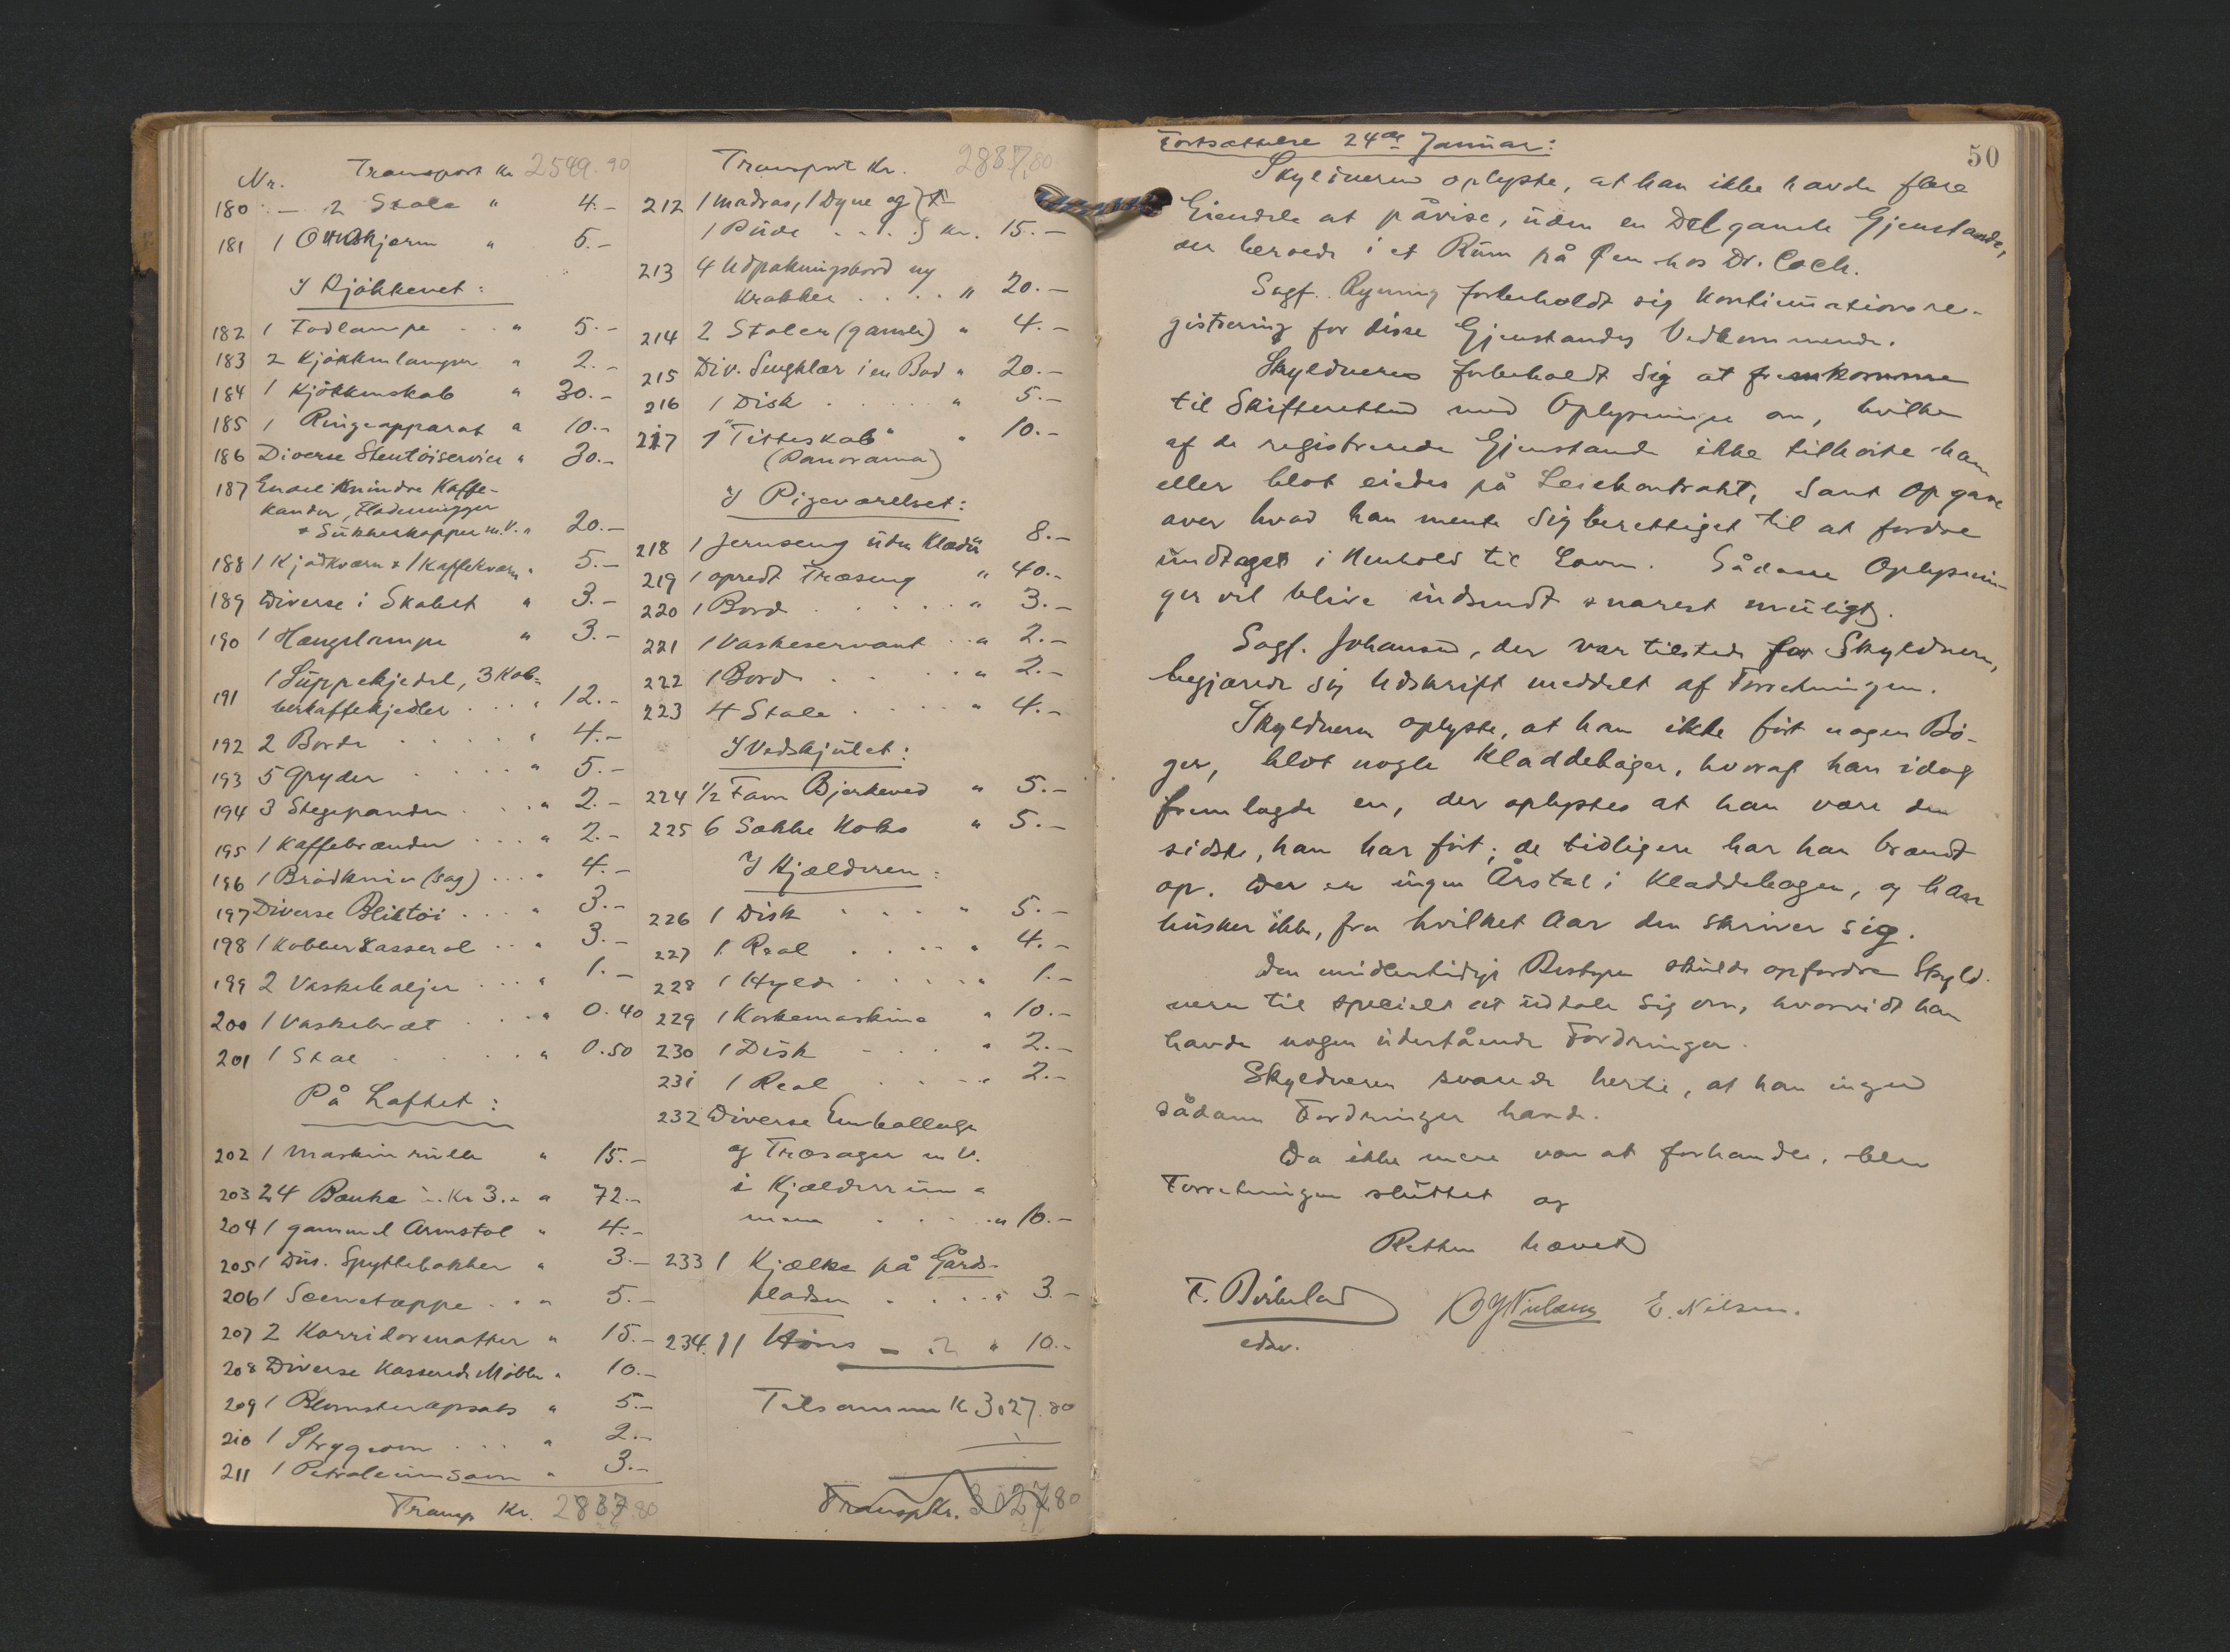 Nr. Transport Kr 2549.90
180 - 2 Stole " 4.-
181 1 Ovnskjærm " 5.-
I Kjøkkenet:
182 1 Fodlampe . . " 5.-
183 2 Kjøkkenlamper " 2.-
184 1 Kjøkkenskab " 30.-
185 1 Ringeapparat " 10.-
186 Diverse Stentøiservice " 30.-
187 Endel mindre Kaffe-
kander, Flødemugger
& Sukkerkopper m.V. " 20.-
188 1 Kjødkværn & 1 Kaffekværn " 5.-
189 Diverse i Skabet " 3.-
190 1 Hængelampe " 3.-
1 Suppekjedel, 3 Kob-
191 berkaffekjedler . . . " 12.-
192 2 Borde . . . . . " 4.-
193 5 Gryder . . . . " 5.-
194 3 Stegepander . . . " 2.-
195 1 Kaffebrænder . . . " 2.-
196 1 Brødkniv (sag) . . . " 4.-
197 Diverse Bliktøi . . . " 3.-
198 1 Kobberkasserol . . " 3.-
199 2 Vaskebaljer . . . " 1.-
200 1 Vaskebræt . . . " 0.40
201 1 Stol . . . . . " 0.50
På Loftet:
202 1 Maskinrulle " 15.-
203 24 Bænke à Kr 3.- " 72.-
204 1 gammel Armstol " 4.-
205 1 Dus. Spyttebakker " 3.-
206 1 Scenetæppe . . " 5.-
207 2 Korridormatter " 15.-
208 Diverse kasserede Møbler " 10.-
209 1 Blomsteropsats " 5.-
210 1 Strygeovn . . . " 2.-
211 1 Petroleumsovn " 3.-
Transp Kr. 2837.80
Transport Kr. 2837,80
212 1 Madras, 1 Dyne og
1 Pude . . . Kr. 15.-
213 4 Udpakningsbord og
Krakker . . . . " 20.-
214 2 Stoler (gamle) " 4.-
215 Div. Sengklær i en Bod " 20.-
216 1 Disk . . . . . " 5.-
217 1 "Titteskab" " 10.-
(Panorama)
I Pigeværelset:
218 1 Jernseng uden Klæder 8.-
219 1 opredt Træseng " 40.-
220 1 Bord . . . . . " 3.-
221 1 Vaskeservant . . " 2.-
222 1 Bord . . . . . " 2.-
223 4 Stole . . . . " 4.-
I Vedskjulet:
224 1/2 Favn Bjerkeved " 5.-
225 6 Sække Koks " 5.-
I Kjælderen:
226 1 Disk . . . . " 5.-
227 1 Reol . . . . " 4.-
228 1 Hylde . . . . " 1.-
229 1 Korkemaskine " 10.-
230 1 Disk - . . . " 2.-
231 1 Reol . . . . " 2.-
232 Diverse Emballage
og Træsager m.V.
i Kjælderrum-
mene . . . . " 10.-
233 1 Kjælke på Gårds-
pladsen . . . . " 3.-
234. 11 Høns - " 10.-
Tilsammen Kr 3027.80
Transp Kr. 3027.80
50
Fortsættelse 24de Januar:
Skyldneren oplyste, at han ikke havde flere
Eiendele at påvise, uden en Del gamle Gjenstande,
der beroede i et Rum på Øen hos Dr. Coch.
Sagf. Ryning forbeholdt sig Kontinuationsre-
gistrering for disse Gjenstandes Vedkommende.
Skyldneren forbeholdt sig at fremkomme
til Skifteretten med Oplysninger om, hvilke
af de registrerede Gjenstande ikke tilhørte ham
eller blot eiedes på Leiekontrakt, samt Opgave
over hvad han mente sig berettiget til at fordre
undtaget i Henhold til Loven. Sådanne Oplysnin-
ger vil blive indsendt snarest muligt.
Sagf. Johansen, der var tilstede for Skyldneren,
begjærede sig Udskrift meddelt af Forretningen.
Skyldneren oplyste, at han ikke ført nogen Bø-
ger, blot nogle Kladdebøger, hvoraf han idag
fremlagde en, der oplystes at han være den
sidste, han har ført; de tidligere har han brændt
op. Der er ingen Årstal i Kladdebogen, og han
husker ikke, fra hvilket Aar den skriver sig.
Den midlertidige Bestyrer skulde opfordre Skyld-
neren til specielt at udtale sig om, hvorvidt han
havde nogen udestående Fordringer.
Skyldneren svarede hertil, at han ingen
sådanne Fordringer havde.
Da ikke mere var at forhandle, blev
Forretningen sluttet og
Retten hævet
F. Birkeland O J Nielsen E. Nilsen.
edsv.